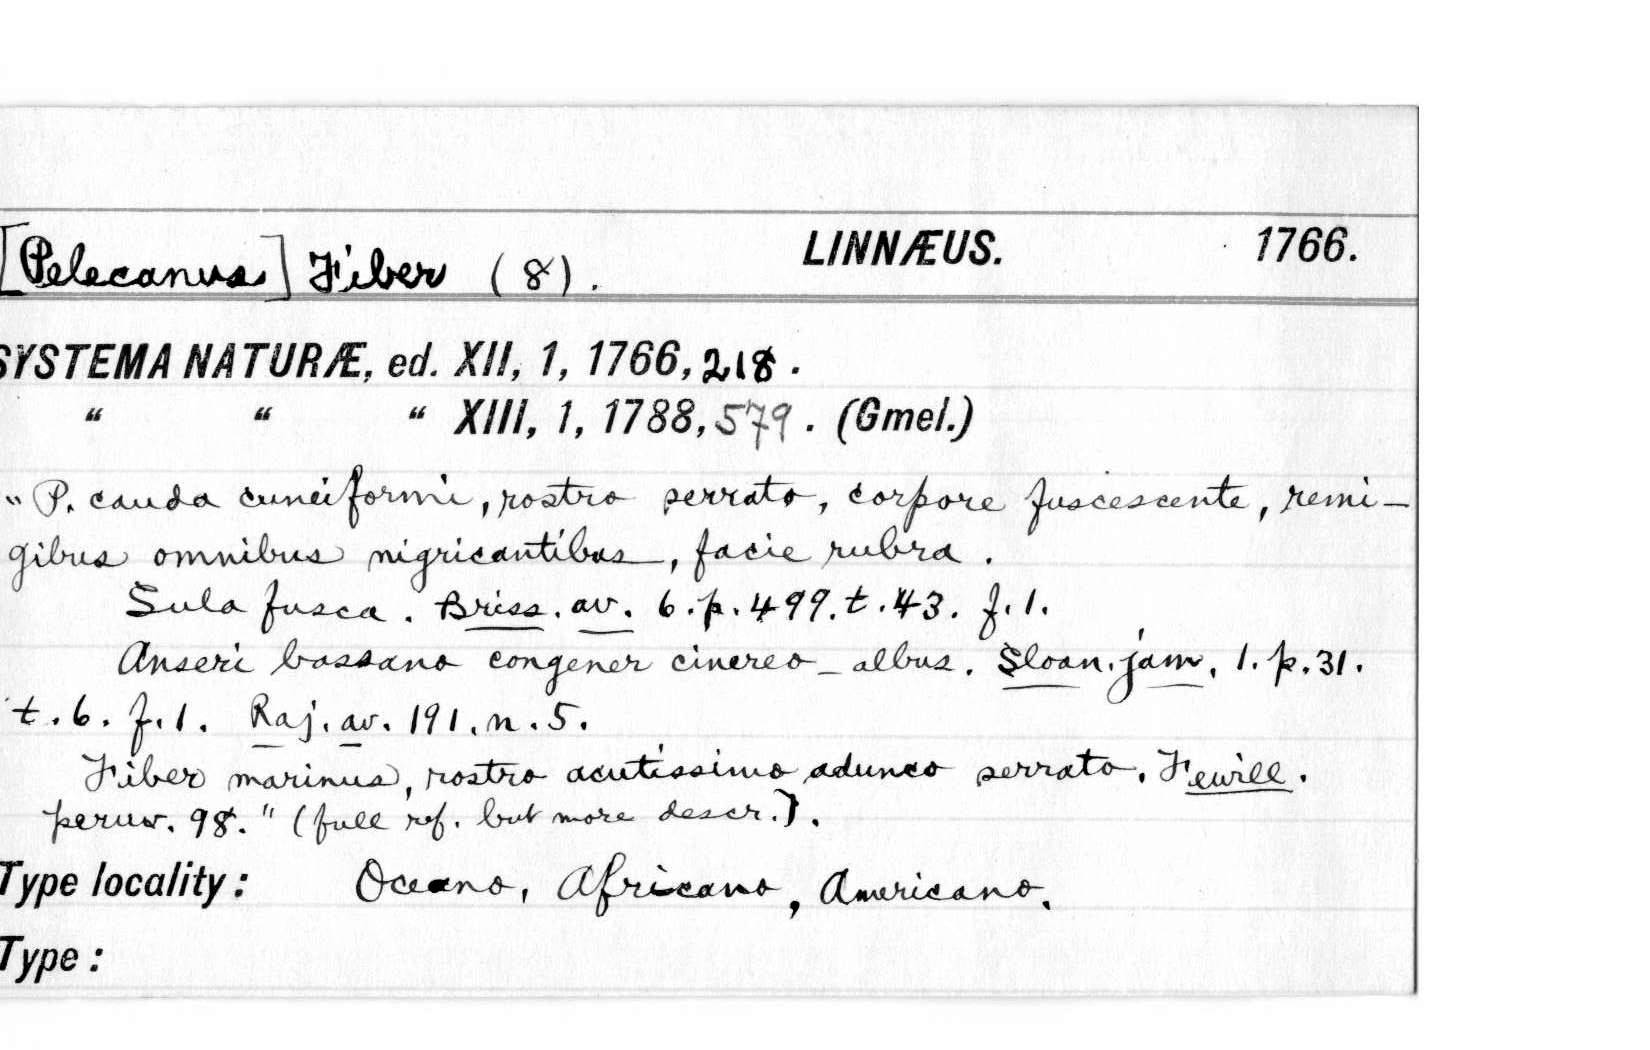 [Pelecanus] Fiber (8). LINNÆUS. 1766.
SYSTEMA NATURÆ, ed. XII, 1, 1766, 218.
“ “ “ XIII, 1, 1788, 579. (Gmel.)
"P. cauda cuneiformi, rostro serrato, corpore fuscescente, remi-
gibus omnibus nigricantibus, facie rubra.
Sula fusca. Briss. av. 6. p. 499. t. 43. f. 1.
Anseri bassano congener cinereo-albus. Sloan. jam. 1. p. 31.
t. 6. f. 1. Raj. av. 191. n. 5.
Fiber marinus, rostro acutissimo adunco serrato. Fewill.
peruv. 98." (full ref. but more descr.).
Type locality: Oceano, Africano, Americano.
Type: